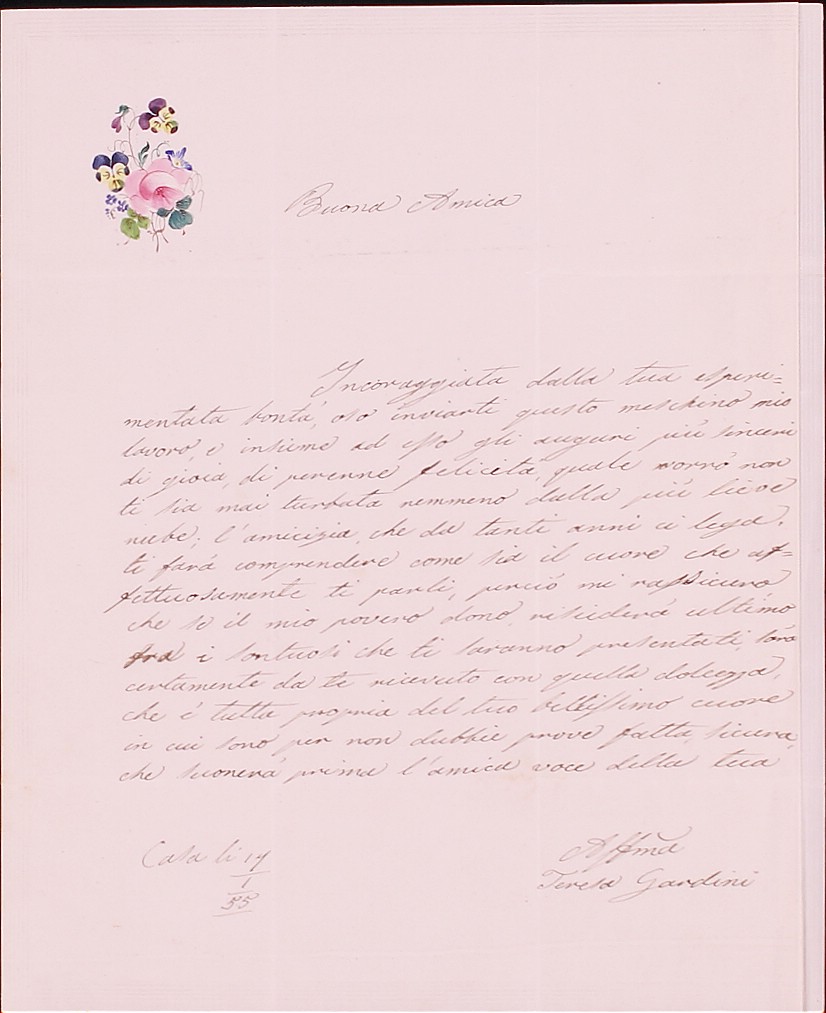 Buona Amica
Incoraggiata dalla tua esperi=
mentata bontà, oso inviarti questo meschino mio
lavoro, e insieme ad esso gli auguri più sinceri
di gioia, di perenne felicità, quale vorrò non
ti sia mai turbata nemmeno dalla più lieve
nube; l'amicizia, che da tanti anni ci lega,
ti farà comprendere come sia il cuore che af=
fettuosamente ti parli, perciò mi rassicuro
che se il mio povero dono, risiederà ultimo
fra i sontuosi che ti saranno presentati, sarà
certamente da te ricevuto con quella dolcezza,
che è tutta propria del tuo bellissimo cuore
in cui sono per non dubbie prove fatta sicura,
che suonerà prima l'amica voce della tua
Affma
Teresa Gardini
Casa li 14
1
55